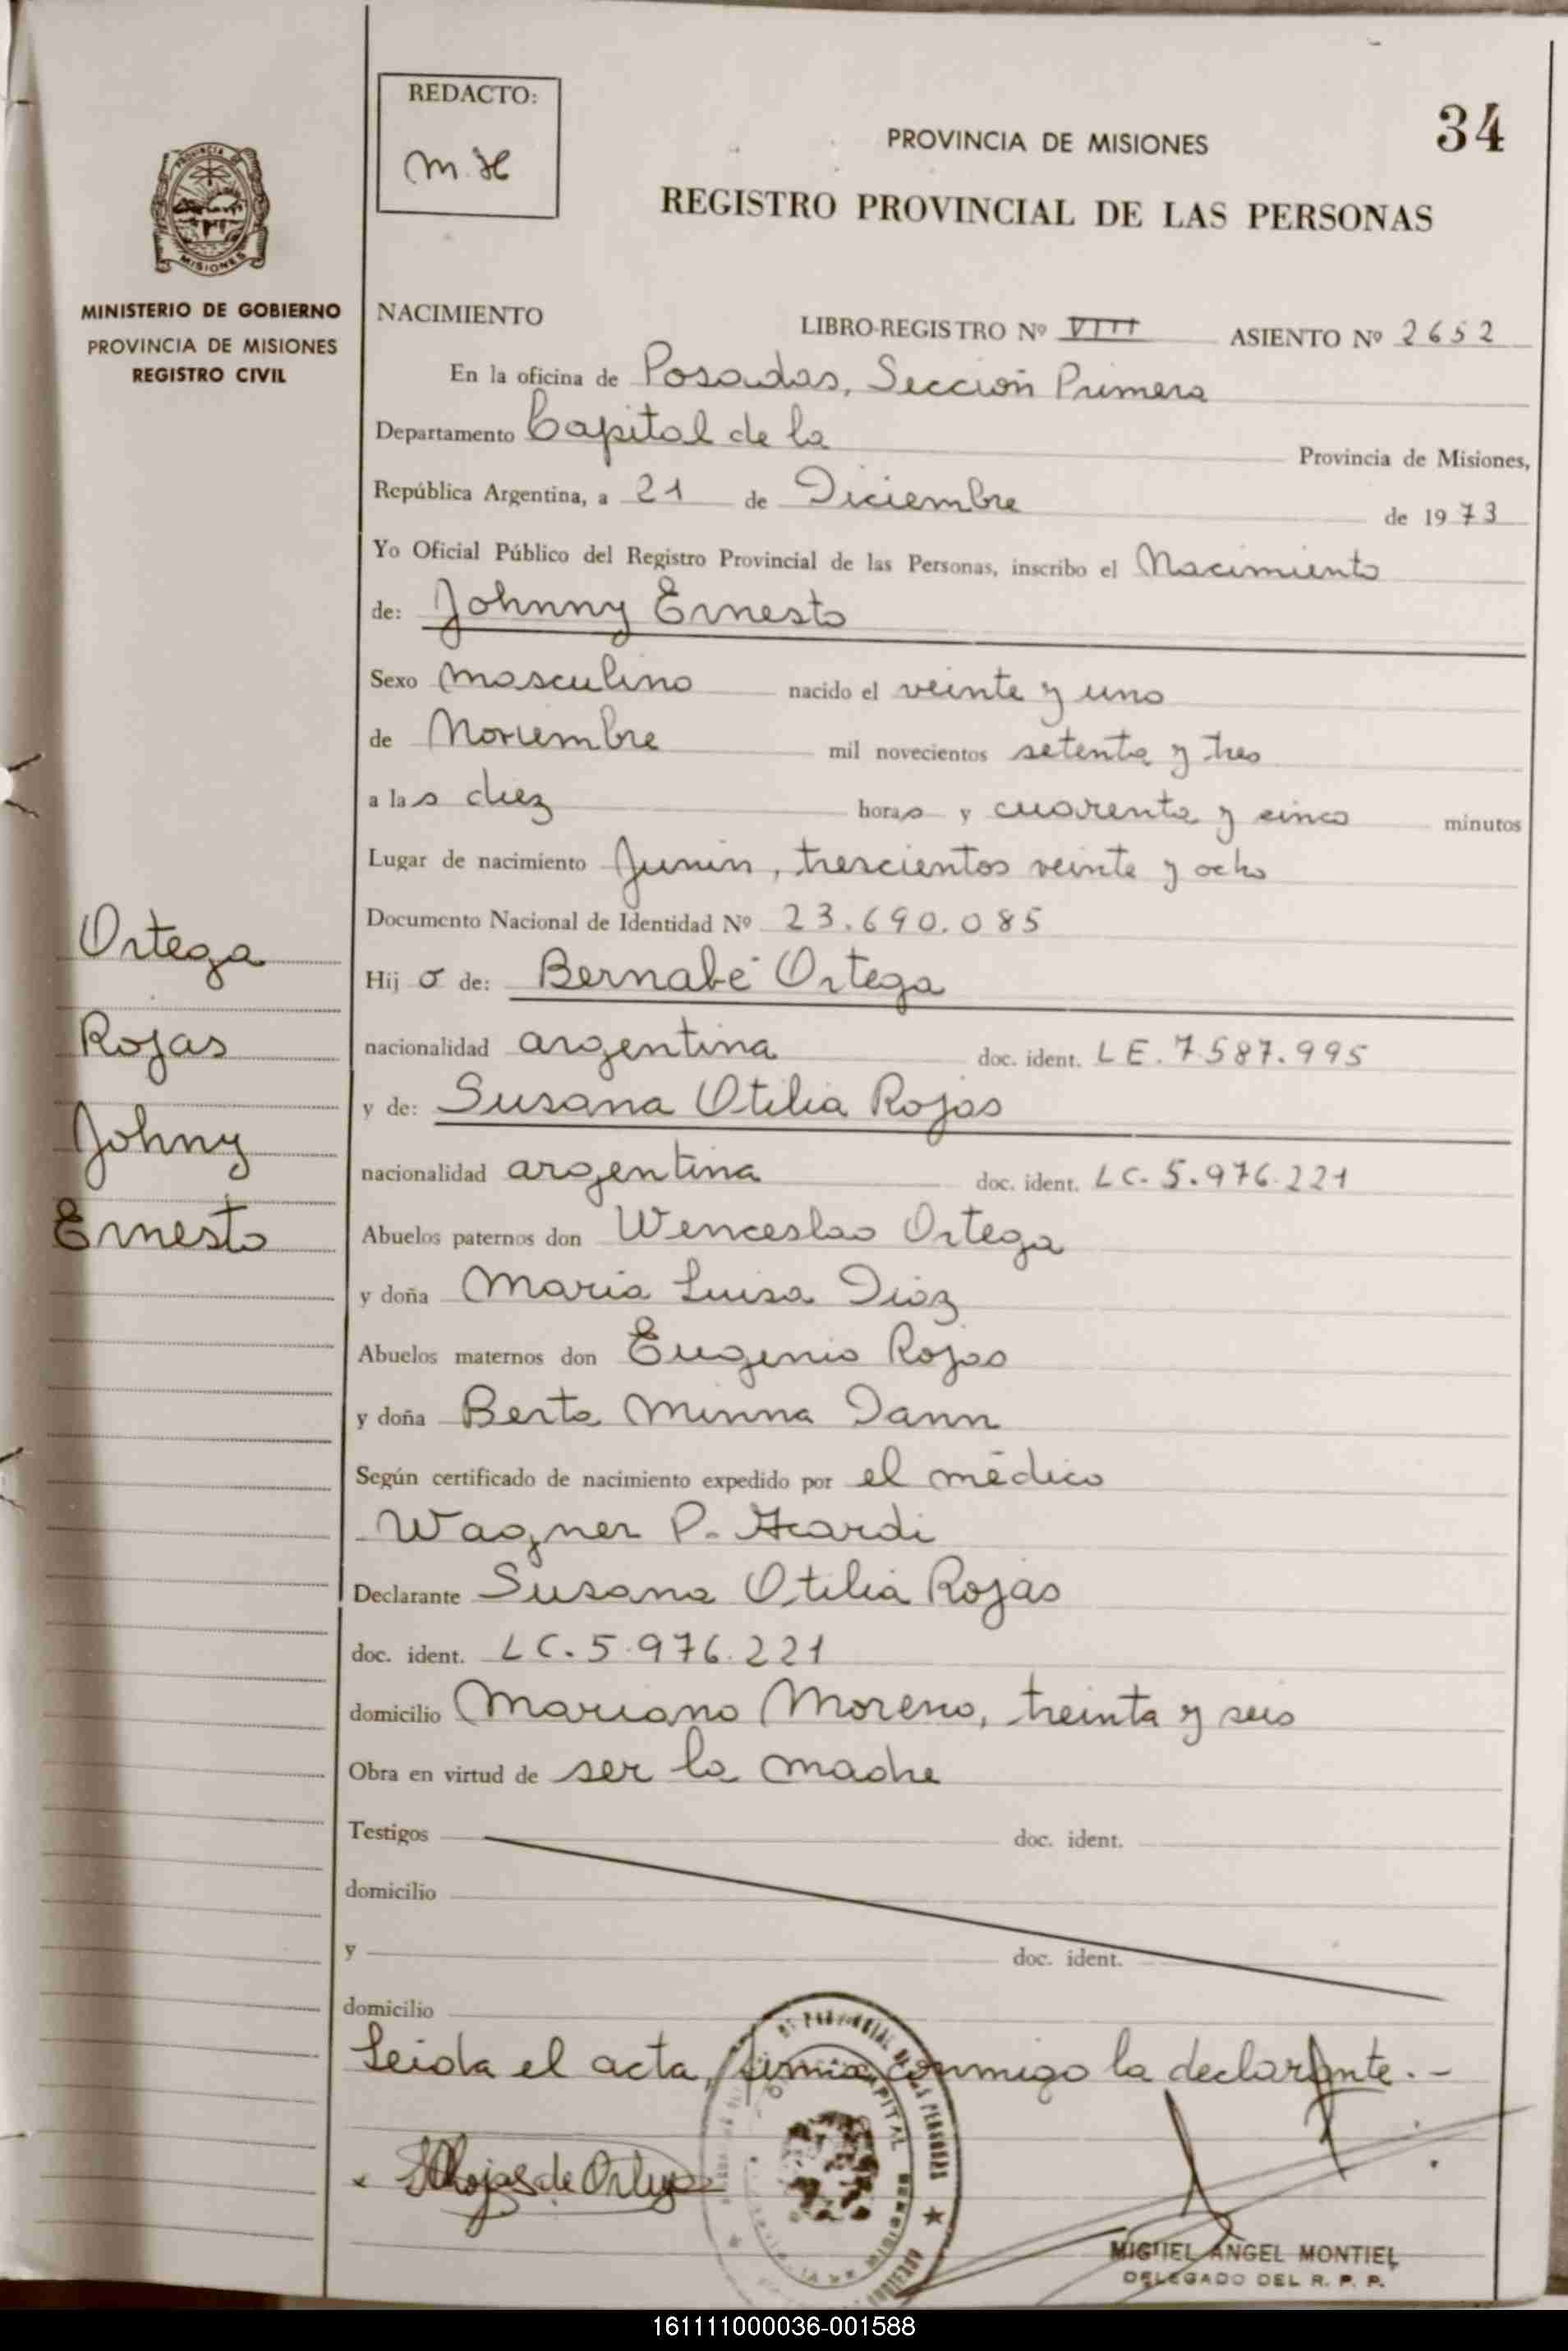 REDACTO:
M.H
34
PROVINCIA DE MISIONES
REGISTRO PROVINCIAL DE LAS PERSONAS
PROVINCIA DE
MISIONES
MINISTERIO DE GOBIERNO
PROVINCIA DE MISIONES
REGISTRO CIVIL
Ortega
Rojas
Johny
Ernesto
NACIMIENTO LIBRO-REGISTRO Nº VIII ASIENTO Nº 2652
En la oficina de Posadas, Sección Primera
Departamento Capital de la Provincia de Misiones,
República Argentina, a 21 de Diciembre de 1973
Yo Oficial Público del Registro Provincial de las Personas, inscribo el Nacimiento
de: Johnny Ernesto
Sexo masculino nacido el veinte y uno
de Noviembre mil novecientos setenta y tres
a las diez horas y cuarenta y cinco minutos
Lugar de nacimiento Junin, trescientos veinte y ocho
Documento Nacional de Identidad Nº 23.690.085
Hijo de: Bernabé Ortega
nacionalidad argentina doc. ident. LE. 7.587.995
y de: Susana Otilia Rojas
nacionalidad argentina doc. ident. LC. 5.976.221
Abuelos paternos don Wenceslao Ortega
y doña Maria Luisa Diaz
Abuelos maternos don Eugenio Rojas
y doña Berta Minna Dann
Según certificado de nacimiento expedido por el médico
Wagner P.
Declarante Susana Otilia Rojas
doc. ident. LC. 5.976.221
domicilio Mariano Moreno, treinta y seis
Obra en virtud de ser la madre
Testigos doc. ident.
domicilio
y doc. ident.
domicilio
Leida el acta, firma conmigo la declarante.-
Rojas de Ortega
MIGUEL ANGEL MONTIEL
DELEGADO DEL R. P. P.
161111000036-001588